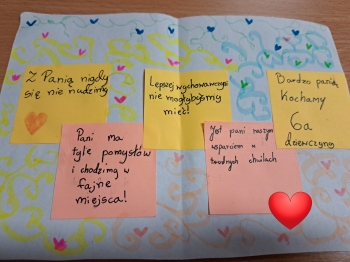 Z Panią nigdy
się nie nudzimy
Lepszej wychowawczyni
nie mogłybyśmy
mieć!
Bardzo panią
kochamy
6a
dziewczyny
Pani ma
tyle pomysłów
i chodzimy w
fajne
miejsca!
Jest pani naszym
wsparciem w
trudnych chwilach